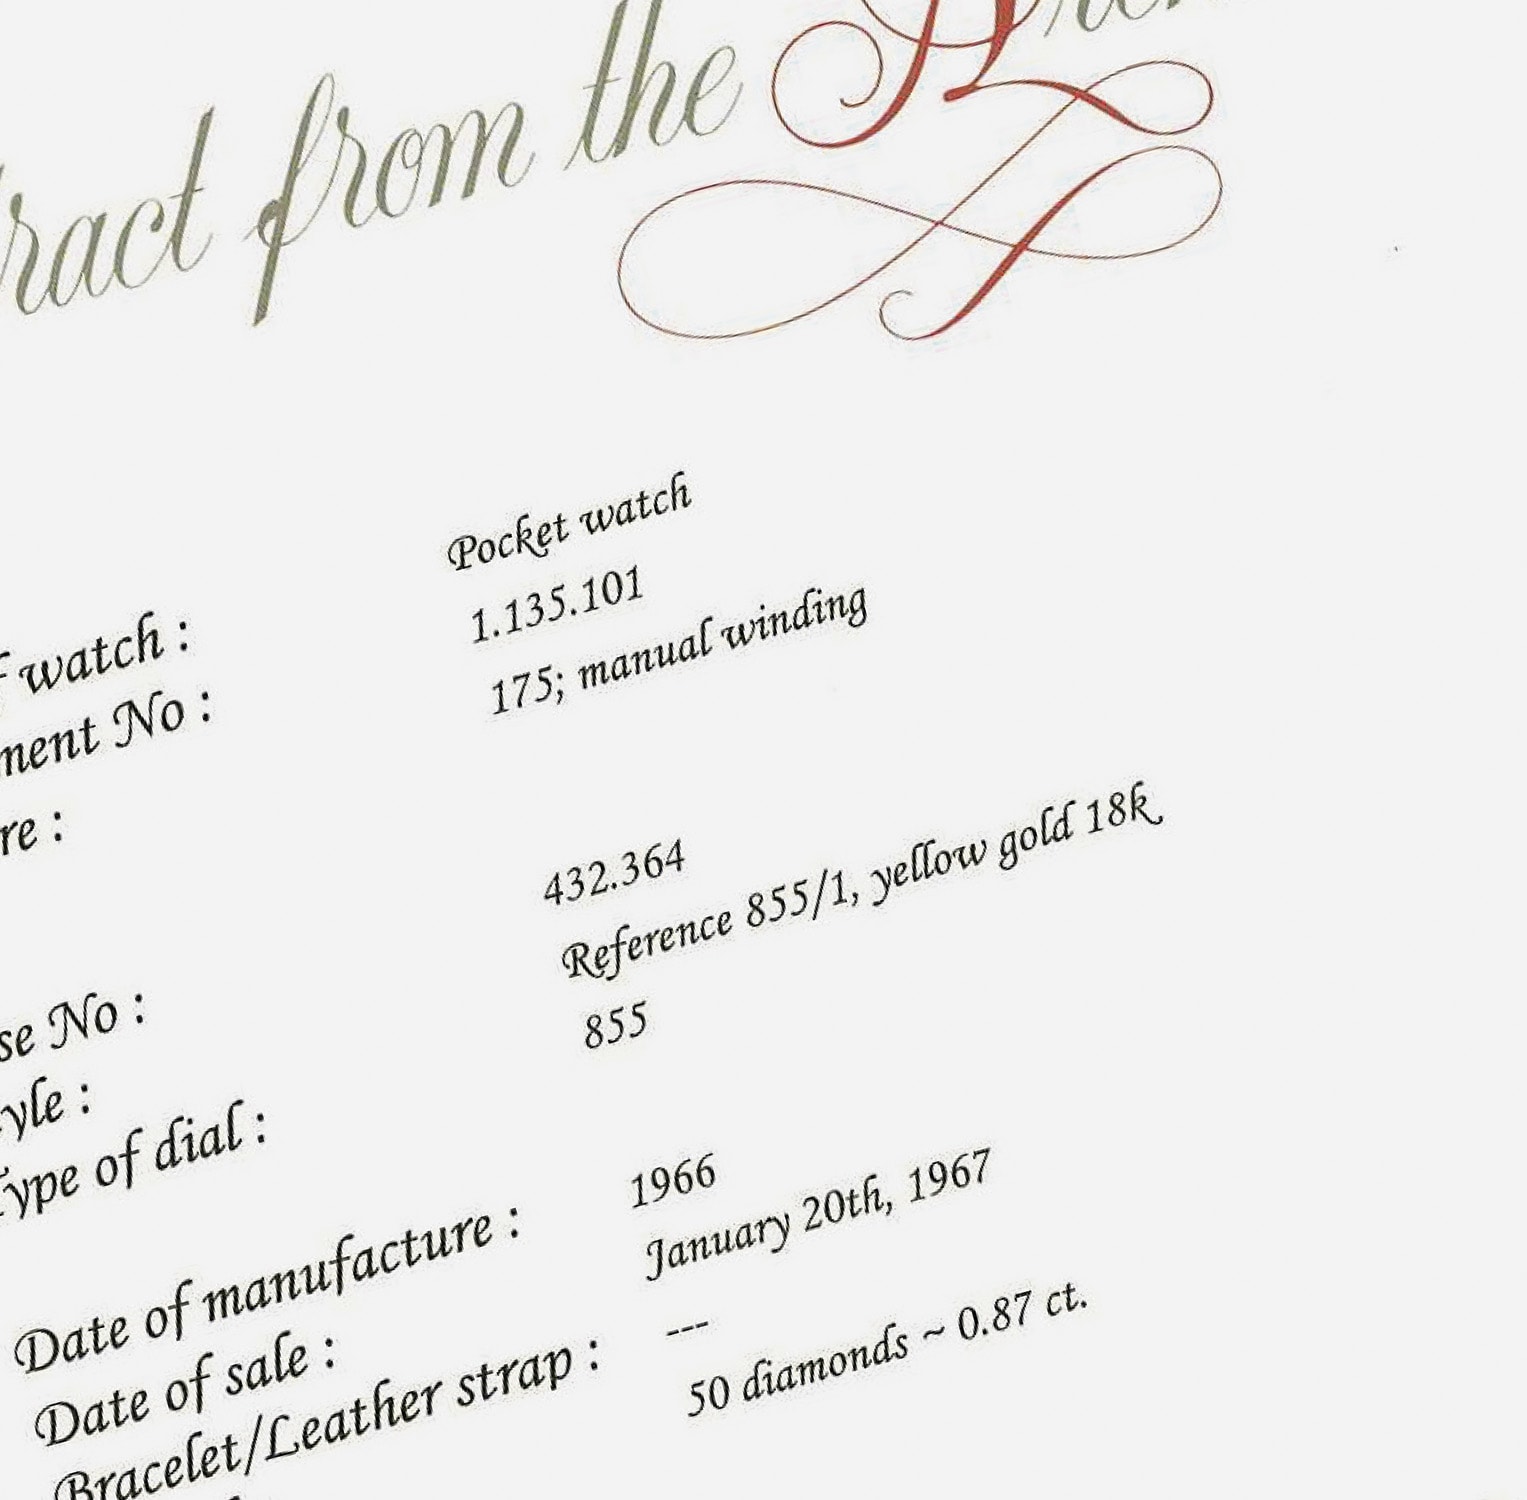 ract from the
Pocket watch
1.135.101
175; manual winding
432.364
Reference 855/1, yellow gold 18k
855
1966
January 20th, 1967
---
50 diamonds ~ 0.87 ct.
f watch :
ment No :
re :
se No :
yle :
Type of dial :
Date of manufacture :
Date of sale :
Bracelet/Leather strap :